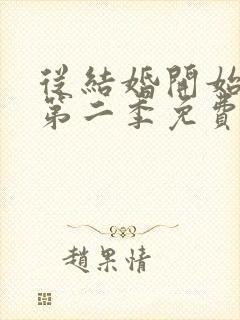 從結婚開始
第二季免費
趙果情